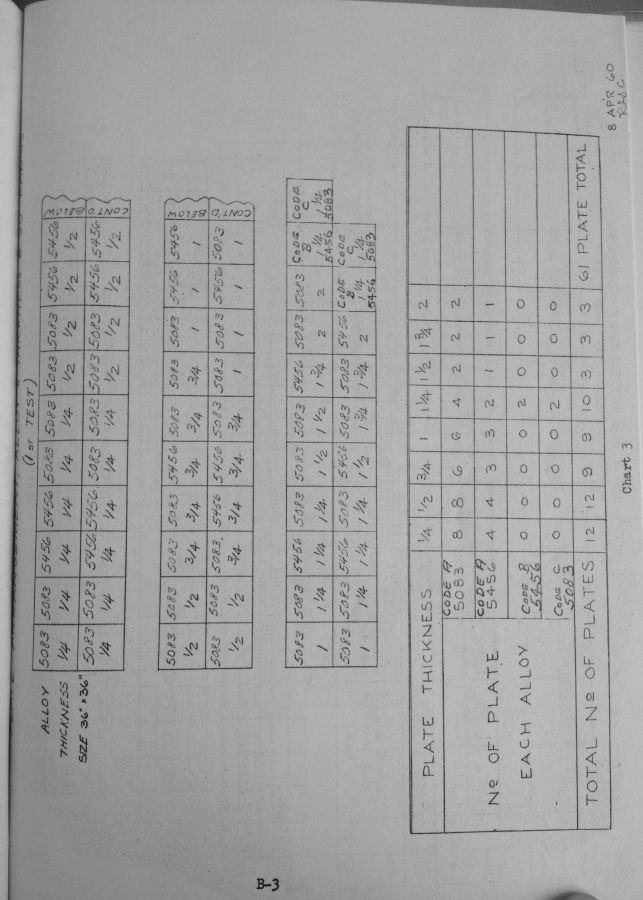 (1ST TEST)
ALLOY 5083 5083 5456 5456 5083 5083 5083 5083 5456 5456 CONT'D.
THICKNESS 1/4 1/4 1/4 1/4 1/4 1/4 1/2 1/2 1/2 1/2 BELOW
SIZE 36" x 36" 5083 5083 5456 5456 5083 5083 5083 5083 5456 5456
1/4 1/4 1/4 1/4 1/4 1/4 1/2 1/2 1/2 1/2
5083 5083 5083 5083 5456 5083 5083 5083 5456 5456 CONT'D.
1/2 1/2 3/4 3/4 3/4 3/4 3/4 1 1 1 BELOW
5083 5083 5083 5456 5456 5083 5083 5083 5456 5083
1/2 1/2 3/4 3/4 3/4 3/4 1 1 1 1
5083 5083 5456 5083 5083 5083 5456 5083 5083 CODE B CODE C
1 1 1/4 1 1/4 1 1/4 1 1/2 1 1/2 1 3/4 2 2 1 1/4 1 1/4
5456 5083
5083 5083 5456 5083 5456 5083 5083 5456 CODE B CODE C
1 1 1/4 1 1/4 1 1/4 1 1/2 1 3/4 1 3/4 2 1 1/4 1 1/4
5456 5083
PLATE THICKNESS 1/4 1/2 3/4 1 1 1/4 1 1/2 1 3/4 2
Nº OF PLATE EACH ALLOY
CODE A 5083 8 8 6 6 4 2 2 2
CODE A 5456 4 4 3 3 2 1 1 1
CODE B 5456 0 0 0 0 2 0 0 0
CODE C 5083 0 0 0 0 2 0 0 0
TOTAL Nº OF PLATES 12 12 9 9 10 3 3 3 61 PLATE TOTAL
8 APR 60
Chart 3
B-3